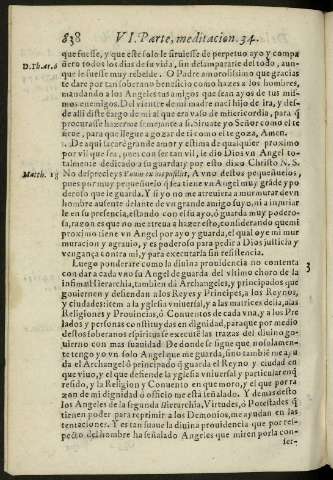 838 VI. Parte, meditacion. 34.
que fuesse, y que este solo le siruiesse de perpetuo ayo y compa
D. Th. ar. 6
ñero todos los dias de su vida, sin desampararle del todo, aun-
que le fuesse muy rebelde. O Padre amorosissimo que gracias
te dare por tan soberano beneficio como hazes a los hombres,
mandando a los Angeles tan amigos que sean ayos de tus mis-
mos enemigos. Del vientre de mi madre naci hijo de ira, y des-
de alli diste cargo de mi al que era vaso de misericordia, para q̃
procurasse hazerme semejante a si. Siruate yo Señor como el te
sirue, para que llegue a gozar de ti como el te goza, Amen.
De aqui sacarè grande amor y estima de qualquier proximo
por vil que sea, pues con ser tan vil, le dio Dios vn Angel to-
talmente dedicado a su guarda; y por esso dixo Christo N. S.
Matth. 18
No desprecieys a vno destos pequeñuelos,
pues por muy pequeñuelo q̃ sea tiene vn Angel muy grãde y po
deroso que le guarda. Y si yo no me atreuiera a murmurar de vn
hombre ausente delante de vn grande amigo suyo, ni a injuriar
le en su presencia, estando con el su ayo, ô guarda muy podero-
sa, razon es que no me atreua a hazer esto, considerando que mi
proximo tiene vn Angel por ayo y guarda, el qual oye mi mur
muracion y agrauio, y es poderoso para pedir a Dios justicia y
vengança contra mi, y para executarla sin resistencia.
Luego ponderarè como la diuina prouidencia no contenta
3
con dar a cada vno su Angel de guarda del vltimo choro de la
infima Hierarchia, tambien dà Archangeles, y principados que
gouiernen y defiendan a los Reyes y Principes, a los Reynos,
y ciudades: item a la yglesia vniuersal, y a las matrices della, a las
Religiones y Prouincias, ô Conuentos de cada vna, y a los Pre
lados y personas constituydas en dignidad, para que por medio
destos soberanos espiritus se executẽ las traças del diuino go-
uierno con mas suauidad. De donde se sigue que no solamen-
te tengo yo vn solo Angel que me guarda, sino tambiẽ me ayu
da el Archangel ô principado q̃ guarda el Reyno y ciudad en
que viuo, y el que defiende la yglesia vniuersal y particular en q̃
resido, y la Religion y Conuento en que moro, y el que por ra
zon de mi dignidad ô officio me està señalado. Y demas desto
los Angeles de la segunda Hierarchia, Virtudes, ô Potestades q̃
tienen poder para reprimir a los Demonios, me ayudan en las
tentaciones. Y es tan suaue la diuina prouidencia que por res-
pecto del hombre ha señalado Angeles que miren por la con-
ser-